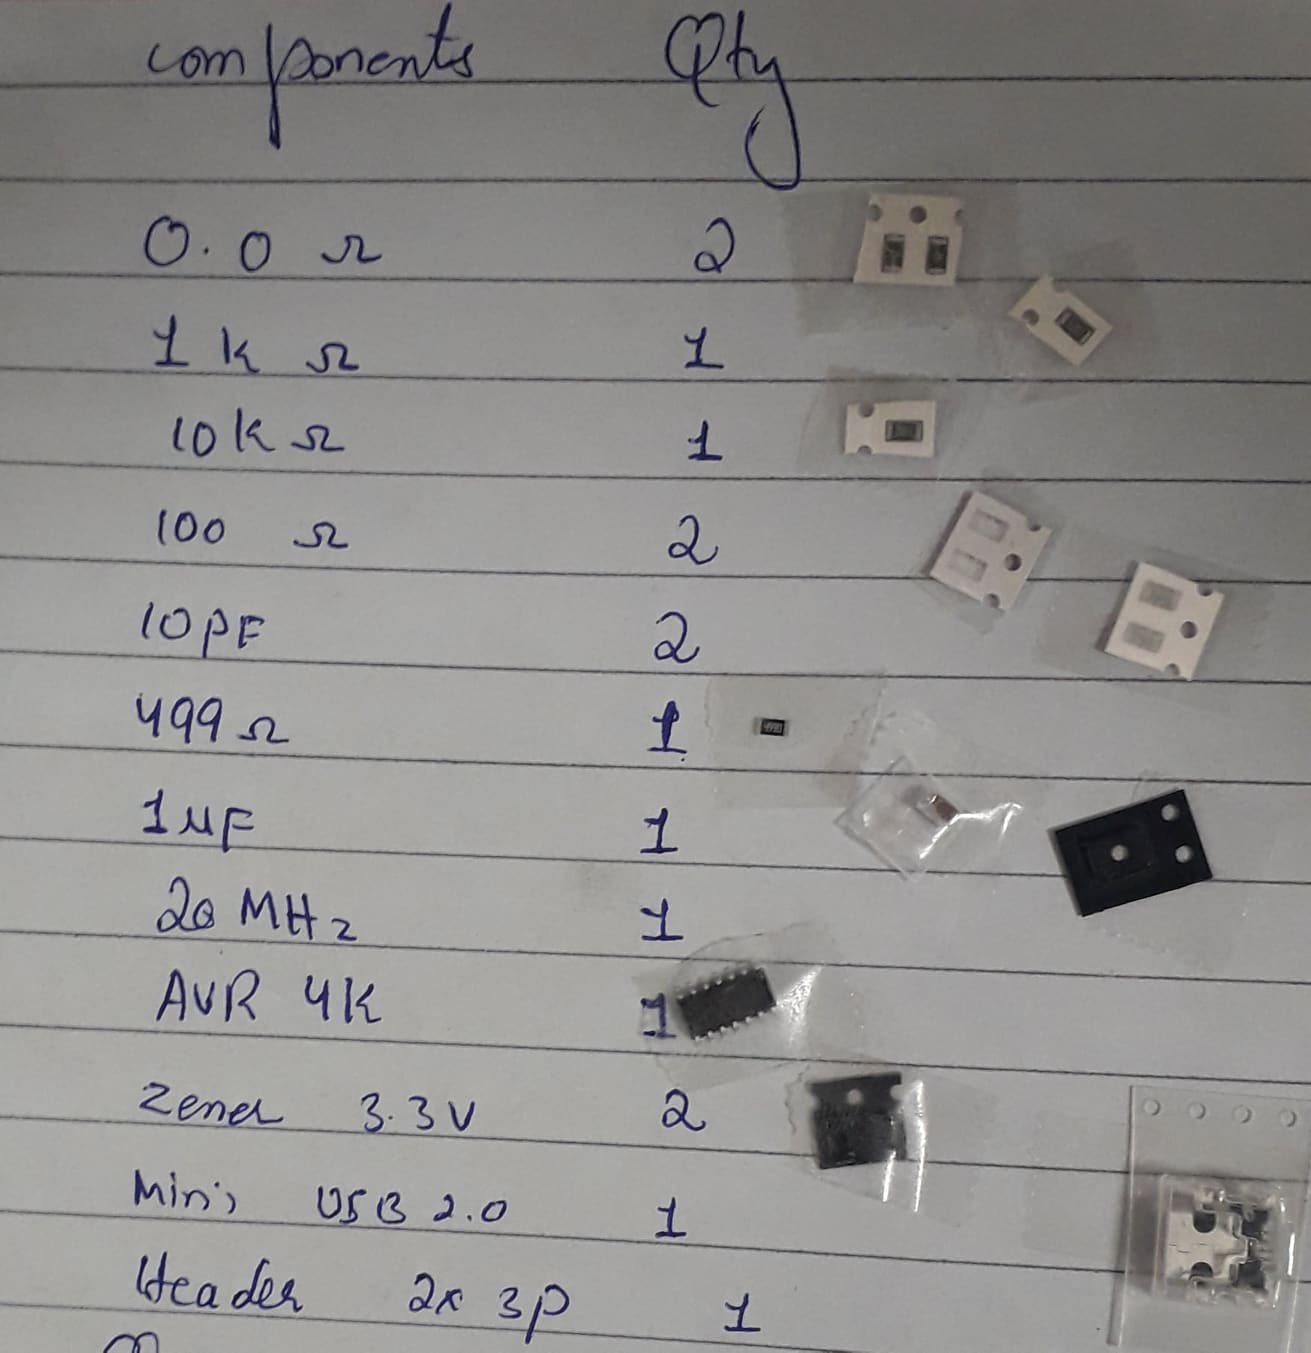 components Qty
0.0 Ω 2
1 k Ω 1
10k Ω 1
100 Ω 2
10pF 2
499 Ω 1
1μF 1
20 MHz 1
AVR 4K 1
Zener 3.3V 2
Mini USB 2.0 1
Header 2x 3p 1